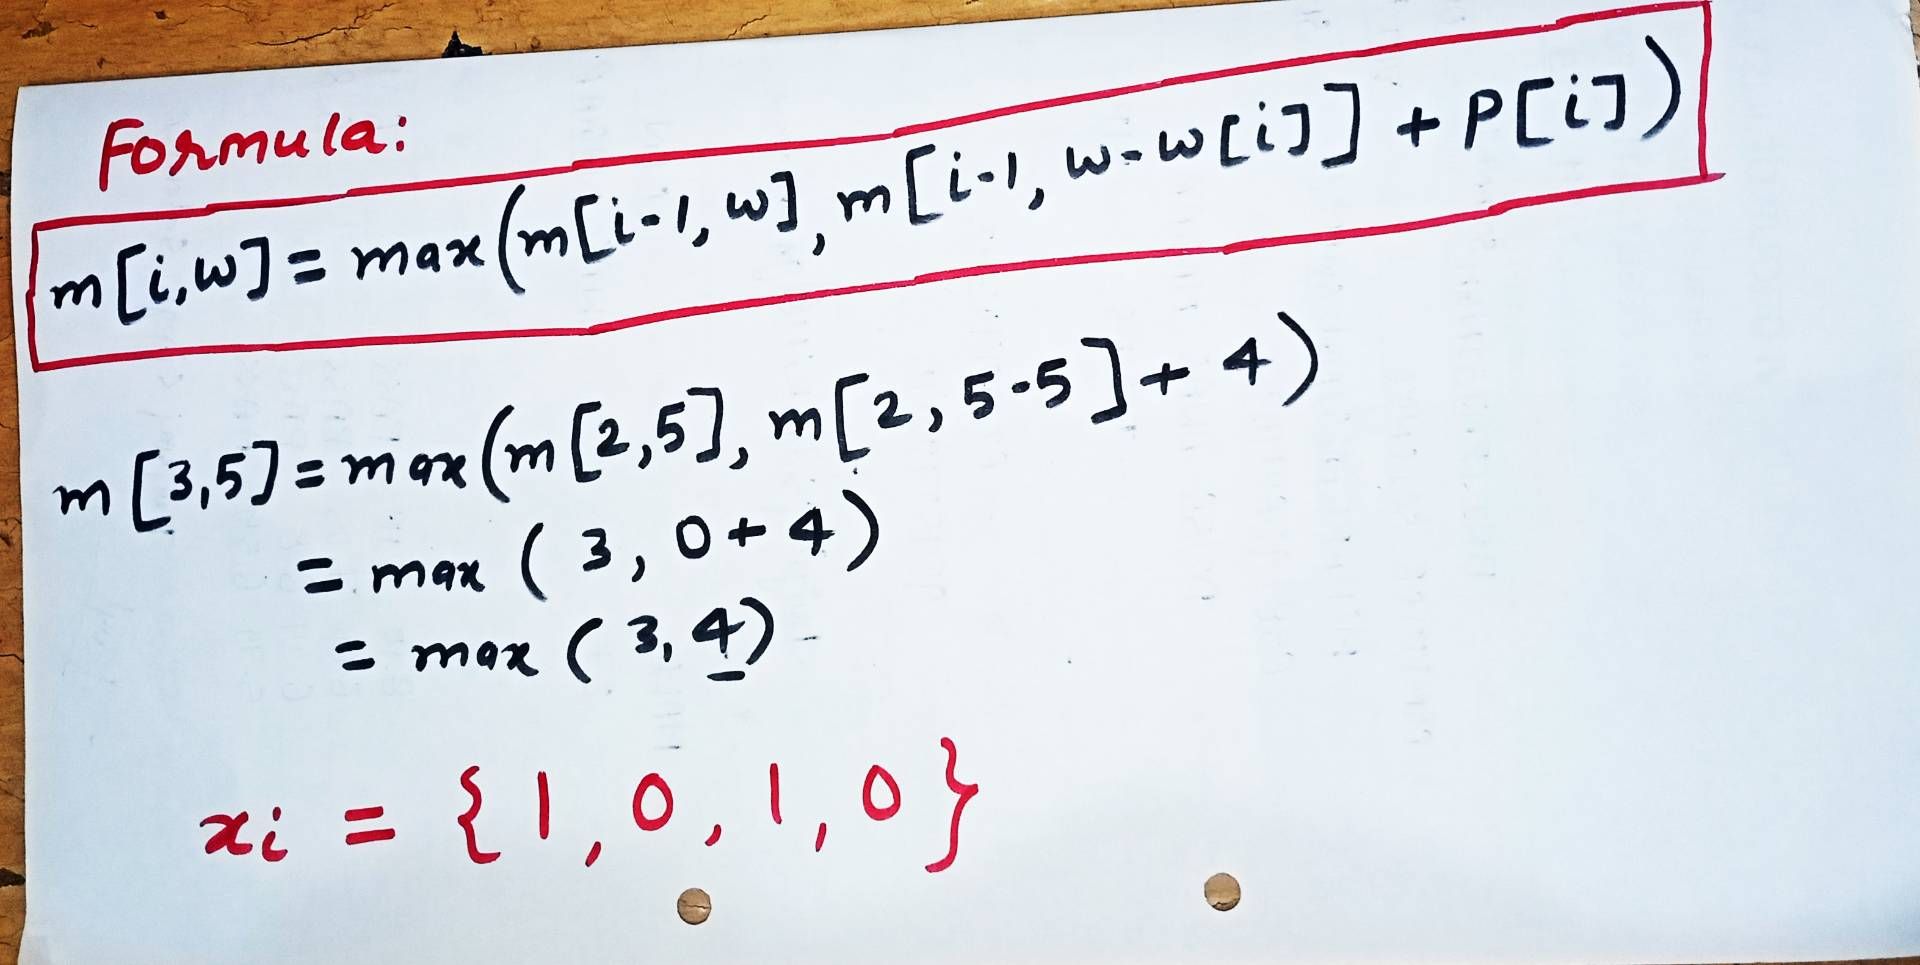 Formula:
m[i,w]=max(m[i-1,w],m[i-1,w-w[i]]+P[i])
m[3,5]=max(m[2,5],m[2,5-5]+4)
=max(3,0+4)
=max(3,4)
xi={1,0,1,0}